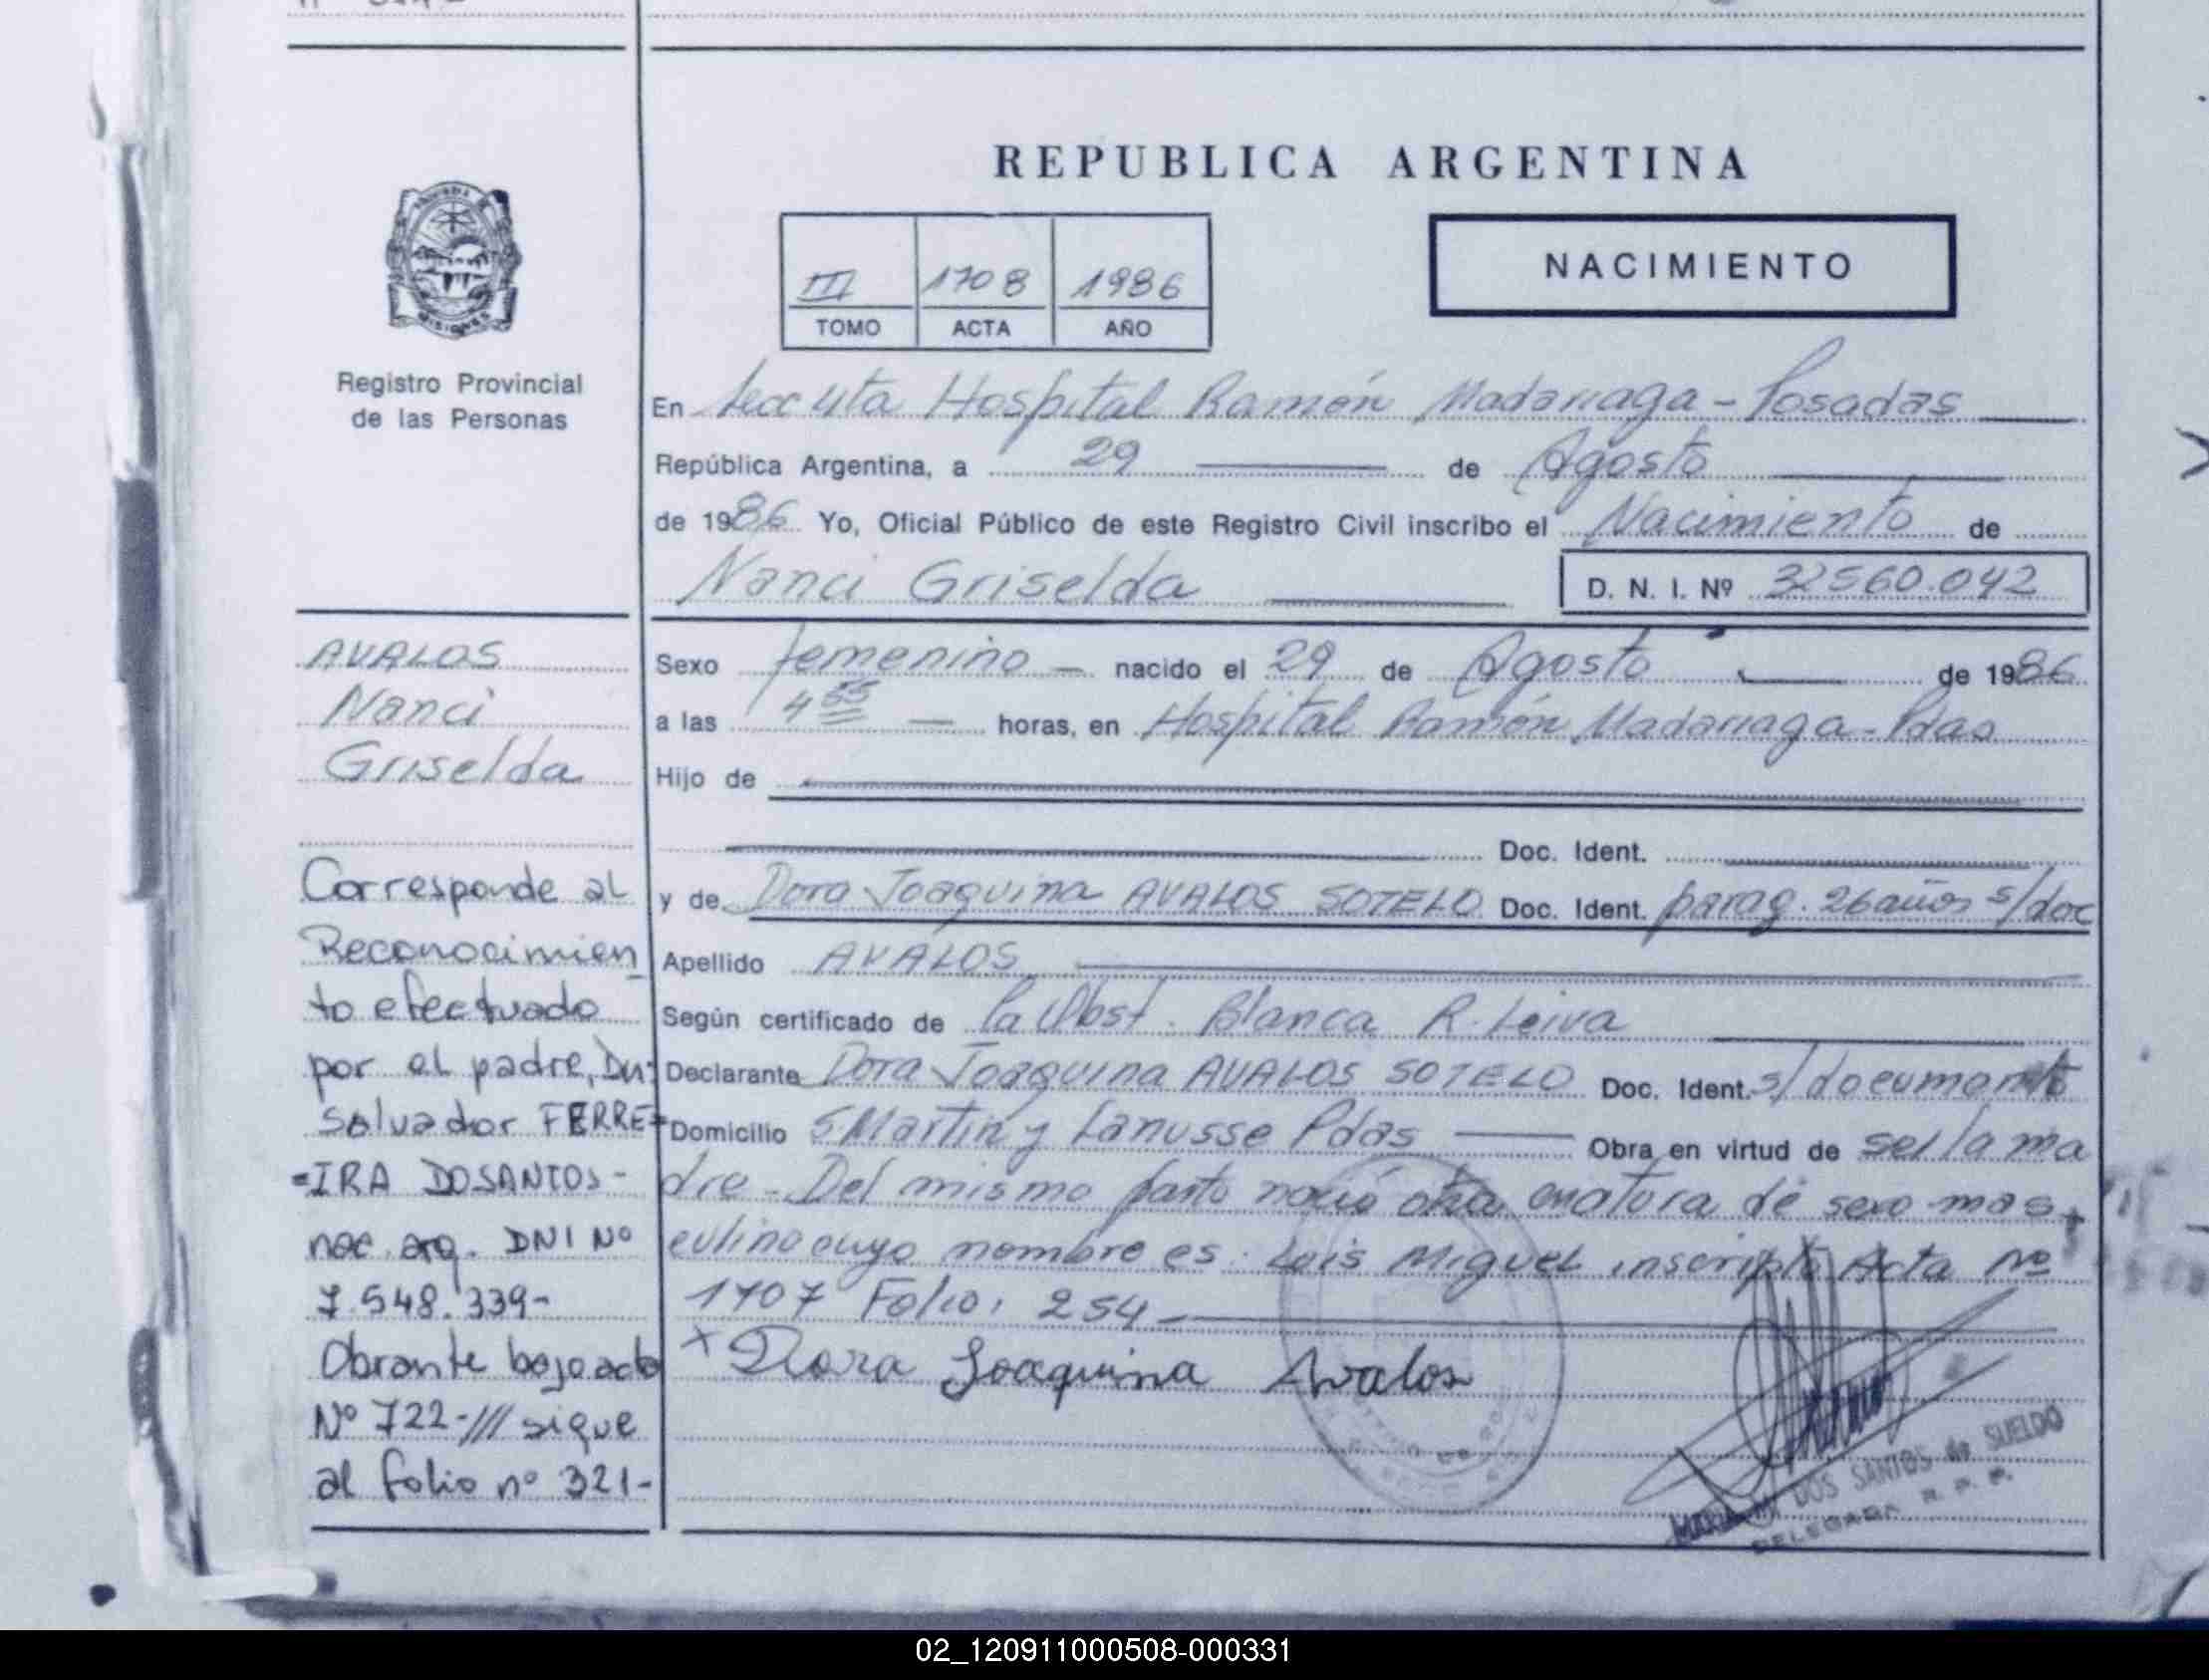 REPUBLICA ARGENTINA
III 1708 1986
TOMO ACTA AÑO
NACIMIENTO
MISIONES
Registro Provincial
de las Personas
En Hospital Ramón Madariaga - Posadas
República Argentina, a 29 de Agosto
de 1986 Yo, Oficial Público de este Registro Civil inscribo el Nacimiento de
Nanci Griselda D. N. I. Nº 32560.042
AVALOS
Nanci
Griselda
Sexo femenino - nacido el 29 de Agosto de 1986
a las 4 55 horas, en Hospital Ramón Madariaga - Pdas
Hijo de
Doc. Ident.
y de Dora Joaquina AVALOS SOTELO Doc. Ident. parag. 26 años s/doc
Apellido AVALOS
Según certificado de la Obst. Blanca R. Leiva
Declarante Dora Joaquina AVALOS SOTELO Doc. Ident. s/documento
Domicilio S.Martin y Lanusse Pdas Obra en virtud de ser la ma
dre - Del mismo parto nació otra criatura de sexo mas
culino cuyo nombre es: Luis Miguel inscripto Acta Nº
1707 Folio: 254
x Dora Joaquina Avalos
Corresponde al
Reconocimien
to efectuado
por el padre, Dn.
Salvador FERRE=
=IRA DOSANTOS-
nac. arg. DNI Nº
7.548.339-
Obrante bajo acta
Nº 722-/// sigue
al folio nº 321-
MARIA M. DOS SANTOS de SUELDO
DELEGADA R. P. P.
02_120911000508-000331